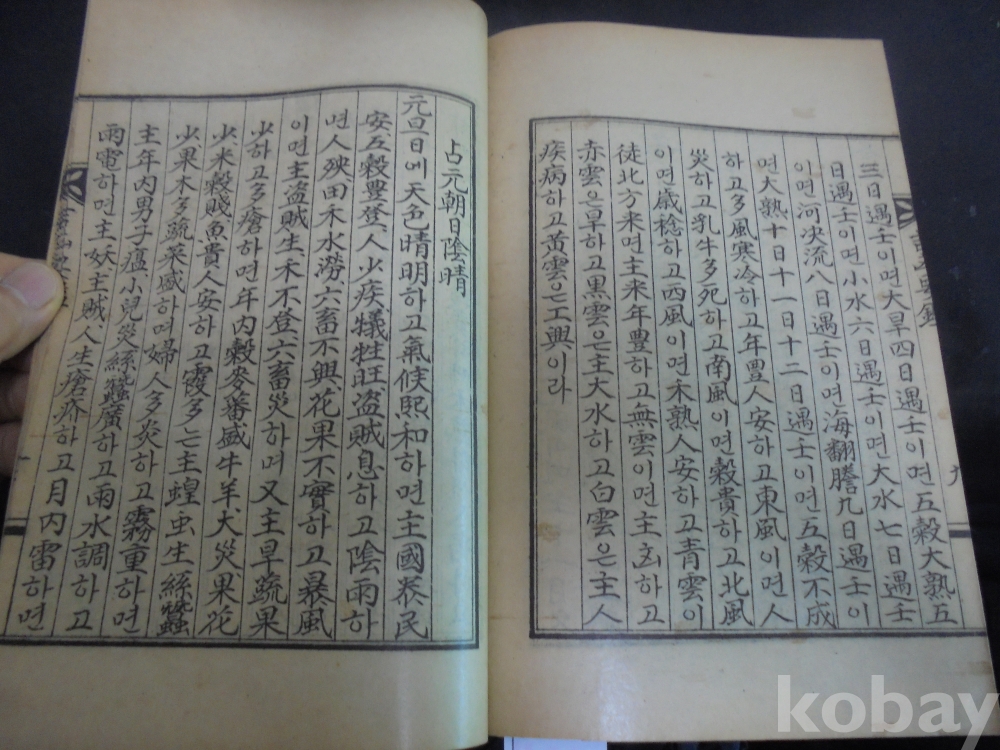 三日遇壬이면大旱四日遇壬이면五穀大熟五
日遇壬이면小水六日遇壬이면大水七日遇壬
이면河決流八日遇壬이면海翻騰九日遇壬이
면大熟十日十一日十二日遇壬이면五穀不成
하고多風寒冷하고年豊人安하고東風이면人
災하고乳牛多死하고南風이면穀貴하고北風
이면歲稔하고西風이면禾熟人安하고青雲이
徒北方来면主来年豊하고無雲이면主玄하고
赤雲은旱하고黒雲은主大水하고白雲은主人
疾病하고黄雲은工興이라
占元朝日陰晴
元旦日에天色晴明하고氣候熙和하면主國泰民
安五穀豊登人少疾犧牲旺盗賊息하고陰雨하
면人殃田禾水澇六畜不興花果不實하고暴風
이면主盗賊生禾不登六畜災하며又主旱蔬果
少하고多瘡하면年内穀麥蕃盛牛羊犬災果花
少米穀賤魚貴人安하고霞多亡主蝗虫生絲蠶
少果木多蔬菜盛하며婦人多災하고霧重하면
主年内男子瘟小兒災絲蠶廣하고雨水調하고
雨雹하면主妖主賊人生瘡疥하고月内雷하면
kobay